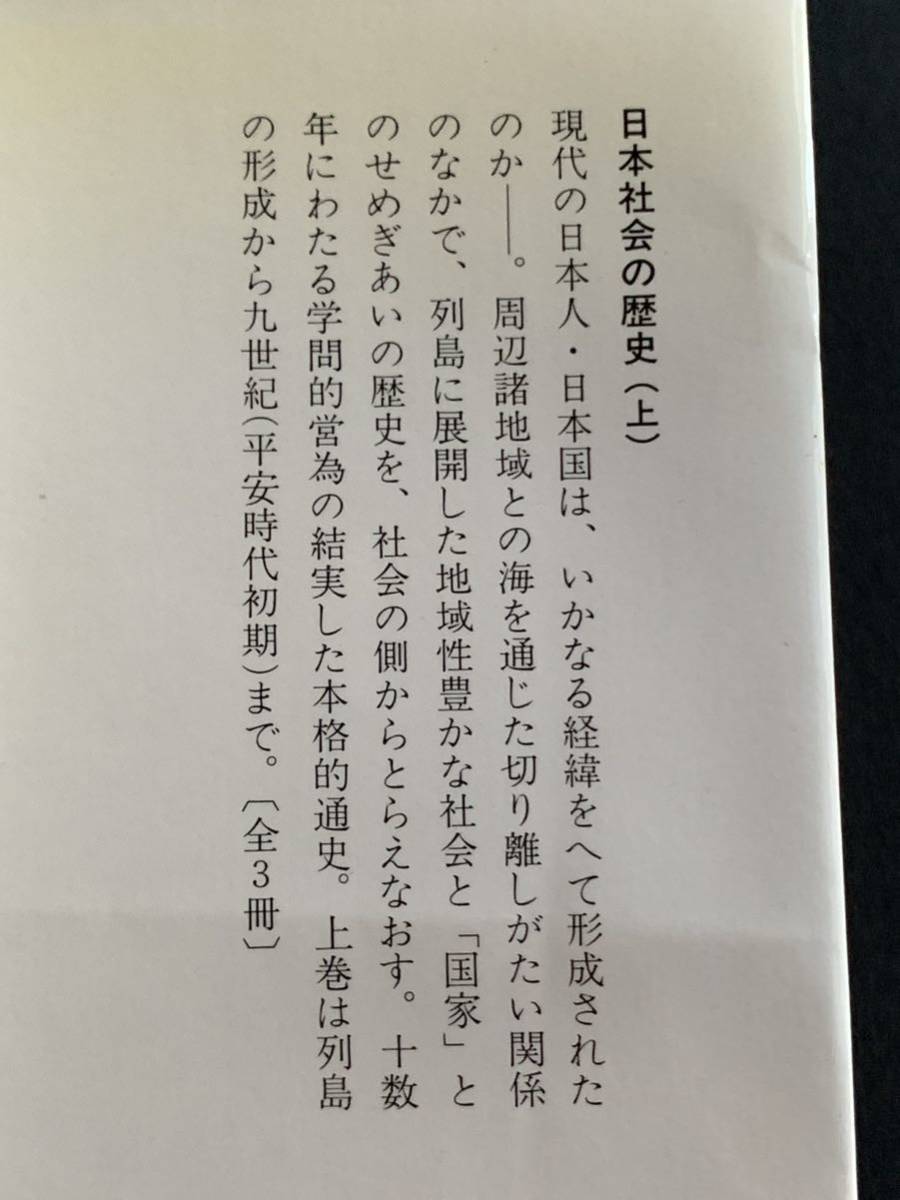 日本社会の歴史(上)
現代の日本人・日本国は、いかなる経緯をへて形成された
のか――。周辺諸地域との海を通じた切り離しがたい関係
のなかで、列島に展開した地域性豊かな社会と「国家」と
のせめぎあいの歴史を、社会の側からとらえなおす。十数
年にわたる学問的営為の結実した本格的通史。上巻は列島
の形成から九世紀(平安時代初期)まで。〔全3冊〕